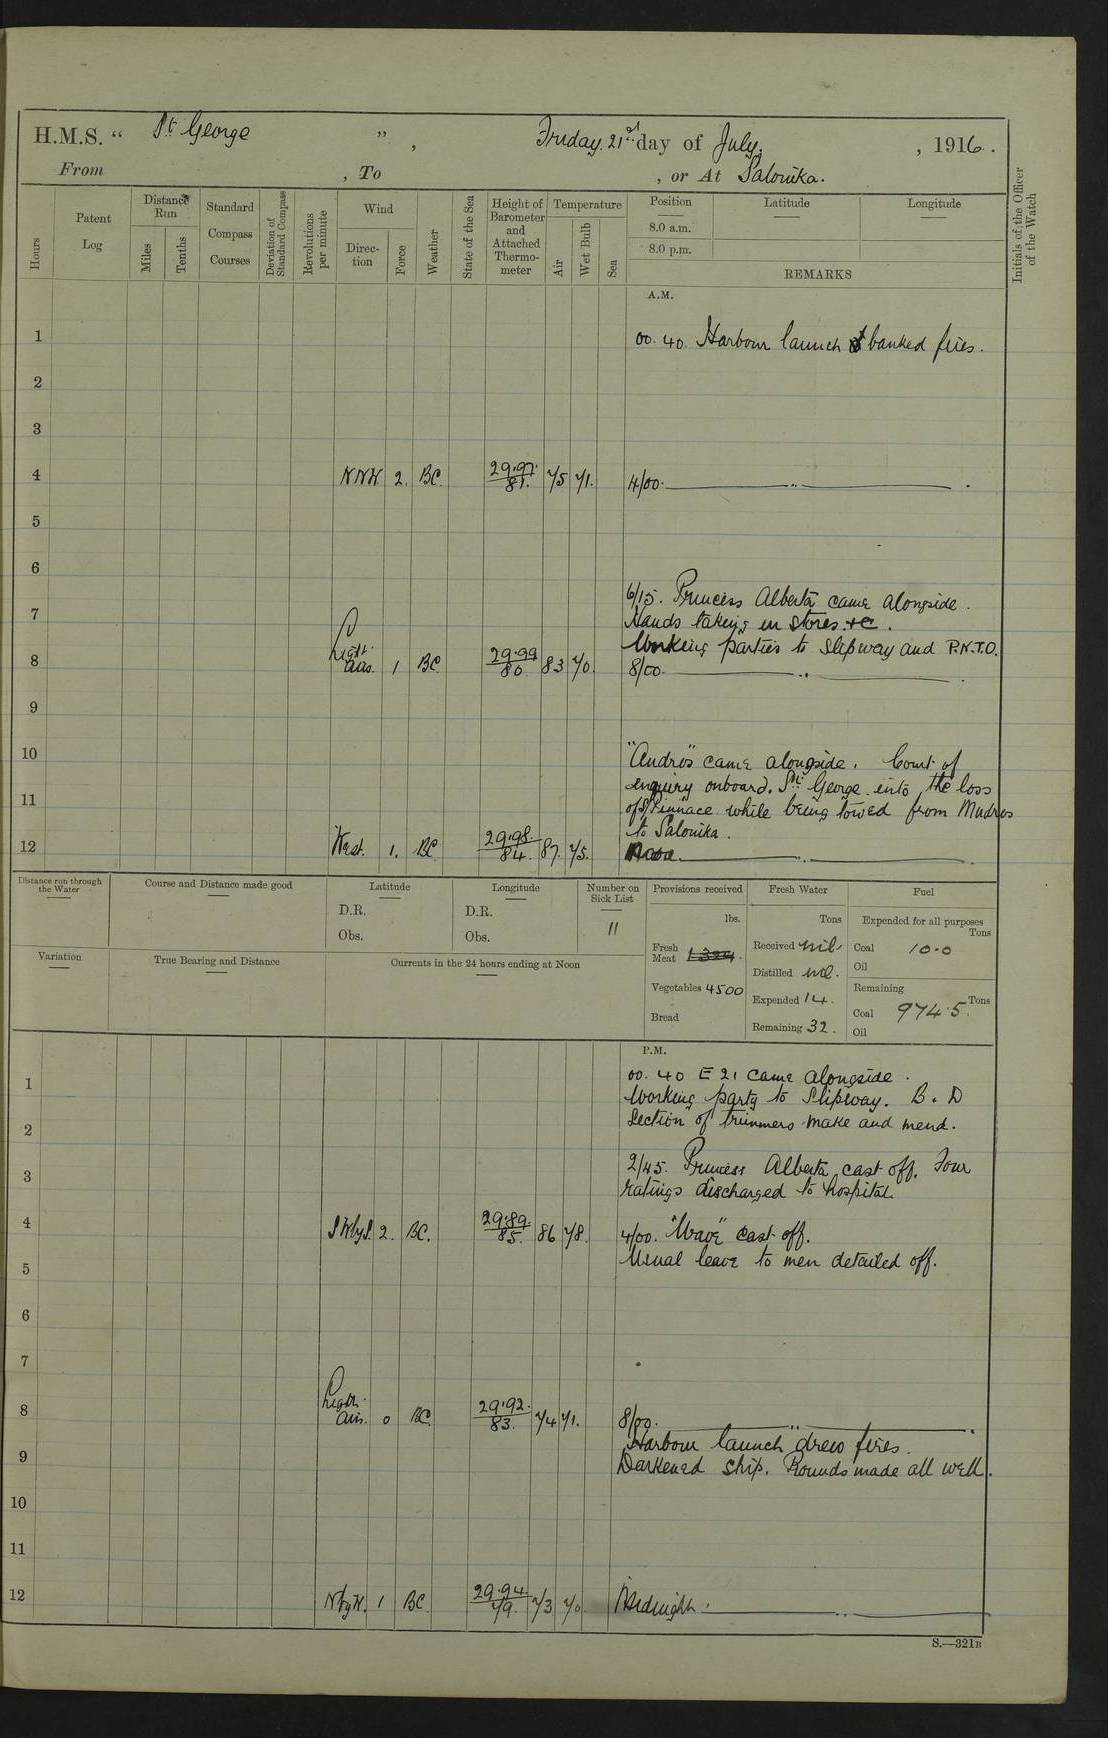 H.M.S. “ St George ” , Friday 21st day of July, , 1916.
From , To , or At Salonika.
Hours
Patent Log
Distance Run
Miles
Tenths
Standard Compass Courses
Deviation of Standard Compass
Revolutions per minute
Wind
Direction
Force
Weather
State of the Sea
Height of Barometer and Attached Thermometer
Temperature
Air
Wet Bulb
Sea
Position
8.0 a.m.
8.0 p.m.
Latitude
Longitude
REMARKS
Initials of the Officer of the Watch
A.M.
1 00.40. Harbour launch banked fires.
2
3
4 NNW 2. BC. 29.97. 81. 75 71. 4/00.
5
6
6/15. Princess Alberta came alongside.
7 Hands taking in stores &c.
Working parties to Slipway and P.N.T.O.
8 Light airs. 1 BC 29.99 80. 83 70. 8/00.
9
10 "Andros" came alongside. Court of
enquiry onboard. St George into the loss
11 of S/Pinnace while being towed from Mudros
to Salonika.
12 West. 1. BC 29.98. 84. 87. 75. Noon.
Distance run through the Water
Course and Distance made good
Latitude
D.R.
Obs.
Longitude
D.R.
Obs.
Number on Sick List
11
Provisions received
lbs.
Fresh Meat
Vegetables 4500
Bread
Fresh Water
Tons
Received nil.
Distilled nil.
Expended 14.
Remaining 32.
Fuel
Expended for all purposes
Tons
Coal 10.0
Oil
Remaining
Tons
Coal 974.5.
Oil
Variation
True Bearing and Distance
Currents in the 24 hours ending at Noon
P.M.
00.40 E 21 came alongside.
1 Working party to Slipway. B. D
Section of trimmers make and mend.
2
2/45. Princess Alberta cast off. Four
3 ratings discharged to hospital.
4 SWbyS. 2. BC. 29.89. 85. 86 78. 4/00. "Wave" cast off.
Usual leave to men detailed off.
5
6
7
8 Light airs. 0 BC. 29.92. 83. 74 71. 8/00.
Harbour launch drew fires.
9 Darkened ship. Rounds made all well.
10
11
12 NbyW. 1 BC 29.94. 79. 73 70 Midnight.
S.—321B